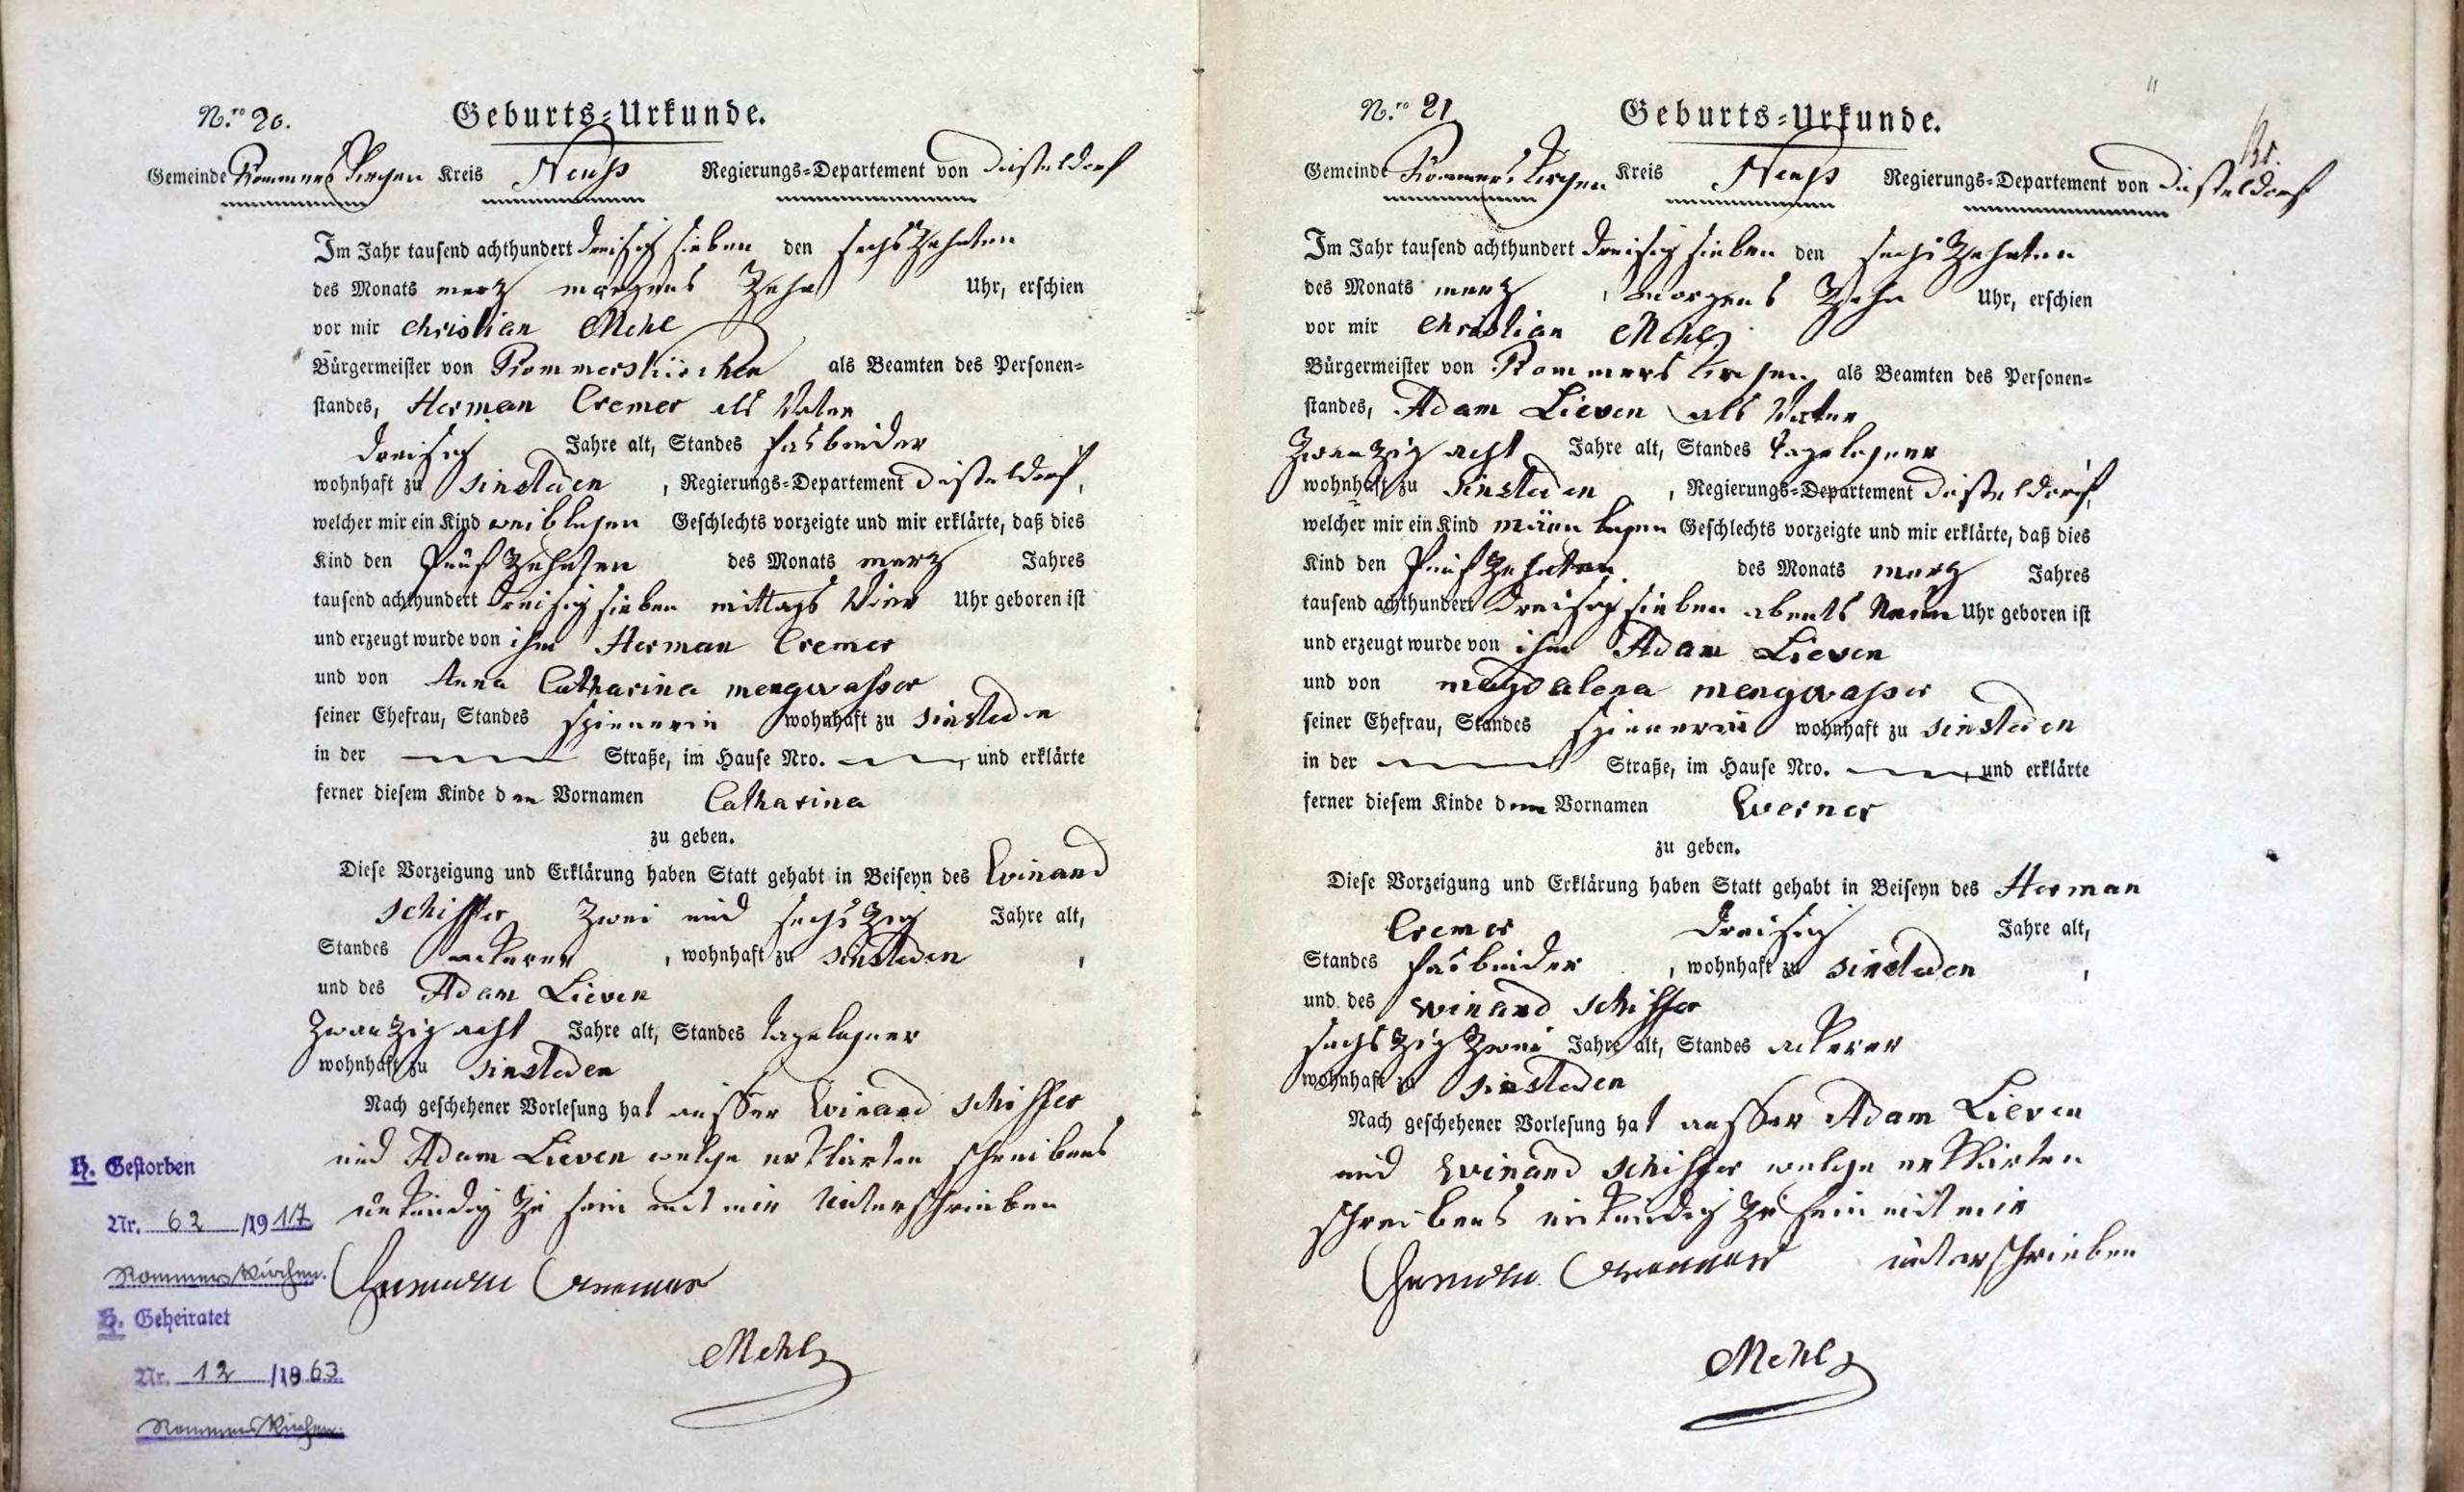 N.ro 20.
Geburts=Urkunde.
Gemeinde Rommerskirchen Kreis Neuss Regierungs=Departement von Düsseldorf
Im Jahr tausend achthundert dreisig sieben den sechszehnten
des Monats merz morgens Zehn Uhr, erschien
vor mir christian Mehl
Bürgermeister von Rommerskirchen als Beamten des Personen=
standes, Herman Cremer als Vater
dreisig Jahre alt, Standes fasbender
wohnhaft zu sinsteden, Regierungs=Departement Düsseldorf,
welcher mir ein Kind weiblichen Geschlechts vorzeigte und mir erklärte, daß dies
Kind den fünfzehnten des Monats merz Jahres
tausend achthundert dreisig sieben mittags Vier Uhr geboren ist
und erzeugt wurde von ihm Herman Cremer
und von Anna Catharina mengwasser
seiner Ehefrau, Standes spinnerin wohnhaft zu sinsteden
in der Straße, im Hause Nro. , und erklärte
ferner diesem Kinde den Vornamen Catharina
zu geben.
Diese Vorzeigung und Erklärung haben Statt gehabt in Beiseyn des Winand
schiffer zwei und sechszig Jahre alt,
Standes ackerer, wohnhaft zu sinsteden,
und des Adam Lieven
zwanzig acht Jahre alt, Standes tagelohner
wohnhaft zu sinsteden
Nach geschehener Vorlesung hat ausser Winand schiffer
und Adam Lieven welche erklärten schreibens
unkundig zu sein mit mir unterschrieben
Hermann Cremer
Mehl
H. Gestorben
Nr. 62 /1917
Rommerskirchen.
H. Geheiratet
Nr. 12 /1863
Rommerskirchen.
N.ro 21
Geburts=Urkunde.
Gemeinde Rommerskirchen Kreis Neuss Regierungs=Departement von Düsseldorf
Im Jahr tausend achthundert dreisig sieben den sechszehnten
des Monats merz, morgens Zehn Uhr, erschien
vor mir christian Mehl
Bürgermeister von Rommerskirchen als Beamten des Personen=
standes, Adam Lieven als Vater
zwanzig acht Jahre alt, Standes tagelohner
wohnhaft zu sinsteden, Regierungs=Departement Düsseldorf,
welcher mir ein Kind männlichen Geschlechts vorzeigte und mir erklärte, daß dies
Kind den fünfzehnten des Monats merz Jahres
tausend achthundert dreisig sieben abents Neun Uhr geboren ist
und erzeugt wurde von ihm Adam Lieven
und von magdalena mengwasser
seiner Ehefrau, Standes spinnerin wohnhaft zu sinsteden
in der Straße, im Hause Nro. , und erklärte
ferner diesem Kinde den Vornamen Werner
zu geben.
Diese Vorzeigung und Erklärung haben Statt gehabt in Beiseyn des Herman
Cremer dreisig Jahre alt,
Standes fasbender, wohnhaft zu sinsteden,
und des winand schiffer
sechszig zwei Jahre alt, Standes ackerer
wohnhaft zu sinsteden
Nach geschehener Vorlesung hat ausser Adam Lieven
und winand schiffer welche erklärten
schreibens unkundig zu sein mit mir
unterschrieben
Hermann Cremer
Mehl